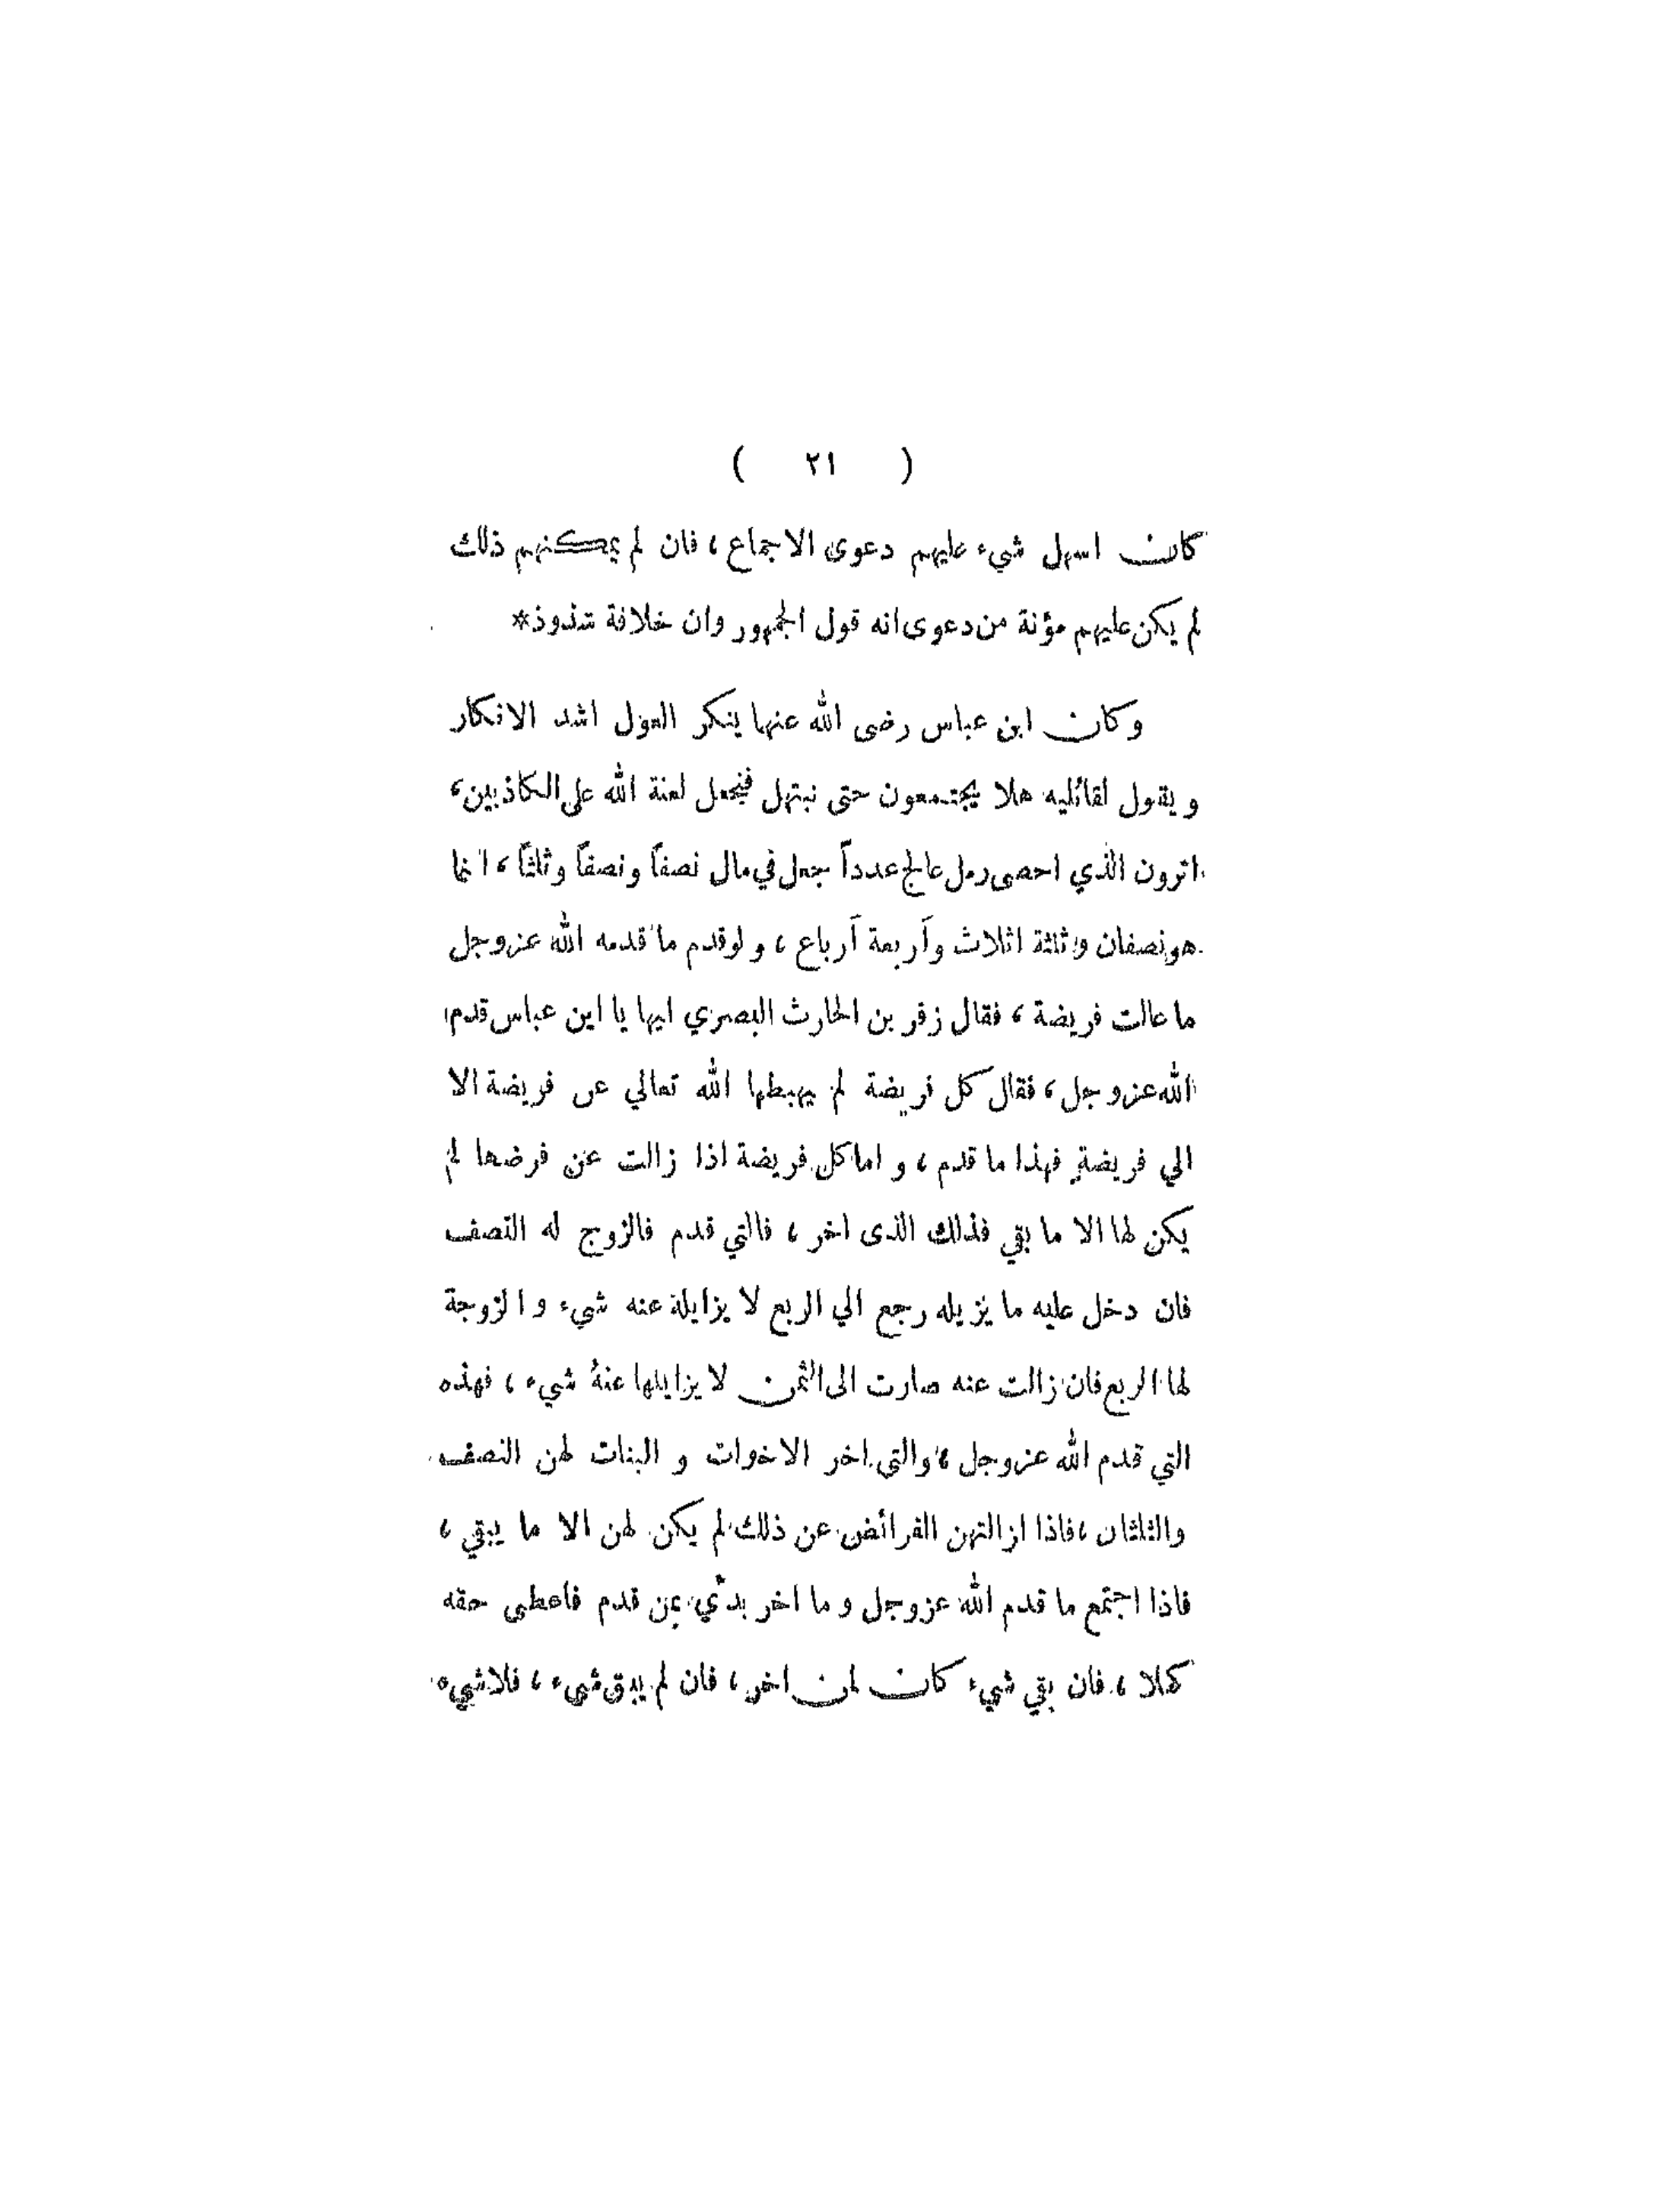 ( ٢١ )
كان اسهل شيء عليهم دعوى الاجماع، فان لم يمكنهم ذلك
لم يكن عليهم مؤنة من دعوى انه قول الجمهور وان خلافة شذوذ*
وكان ابن عباس رضى الله عنها ينكر العول اشد الانكار
ويقول لقائليه هلا يجتمعون حتى نبتهل فنجعل لعنة الله على الكاذبين،
اترون الذي احصى رمل عالج عدداً جعل في مال نصفاً ونصفاً وثلثاً، انما
هو نصفان وثلثة اثلاث وأربعة أرباع، ولو قدم ما قدمه الله عز وجل
ما عالت فريضة، فقال زفر بن الحارث البصري ايها يا ابن عباس قدم
الله عز وجل، فقال كل فريضة لم يهبطها الله تعالي عن فريضة الا
الي فريضة فهذا ما قدم، و اما كل فريضة اذا زالت عن فرضها لم
يكن لها الا ما بقي فذلك الذى اخر، فالتي قدم فالزوج له النصف
فان دخل عليه ما يزيله رجع الي الربع لا يزايلة عنه شيء والزوجة
لها الربع فان زالت عنه صارت الى الثمن لا يزايلها عنهُ شيء، فهذه
التي قدم الله عز وجل، والتي اخر الاخوات و البنات لهن النصف
والثلثان، فاذا ازالتهن الفرائض عن ذلك لم يكن لهن الا ما يبقي،
فاذا اجتمع ما قدم الله عز وجل و ما اخر بدئ بمن قدم فاعطى حقه
كملا، فان بقي شيء كان لمن اخر، فان لم يبق شيء، فلا شيء